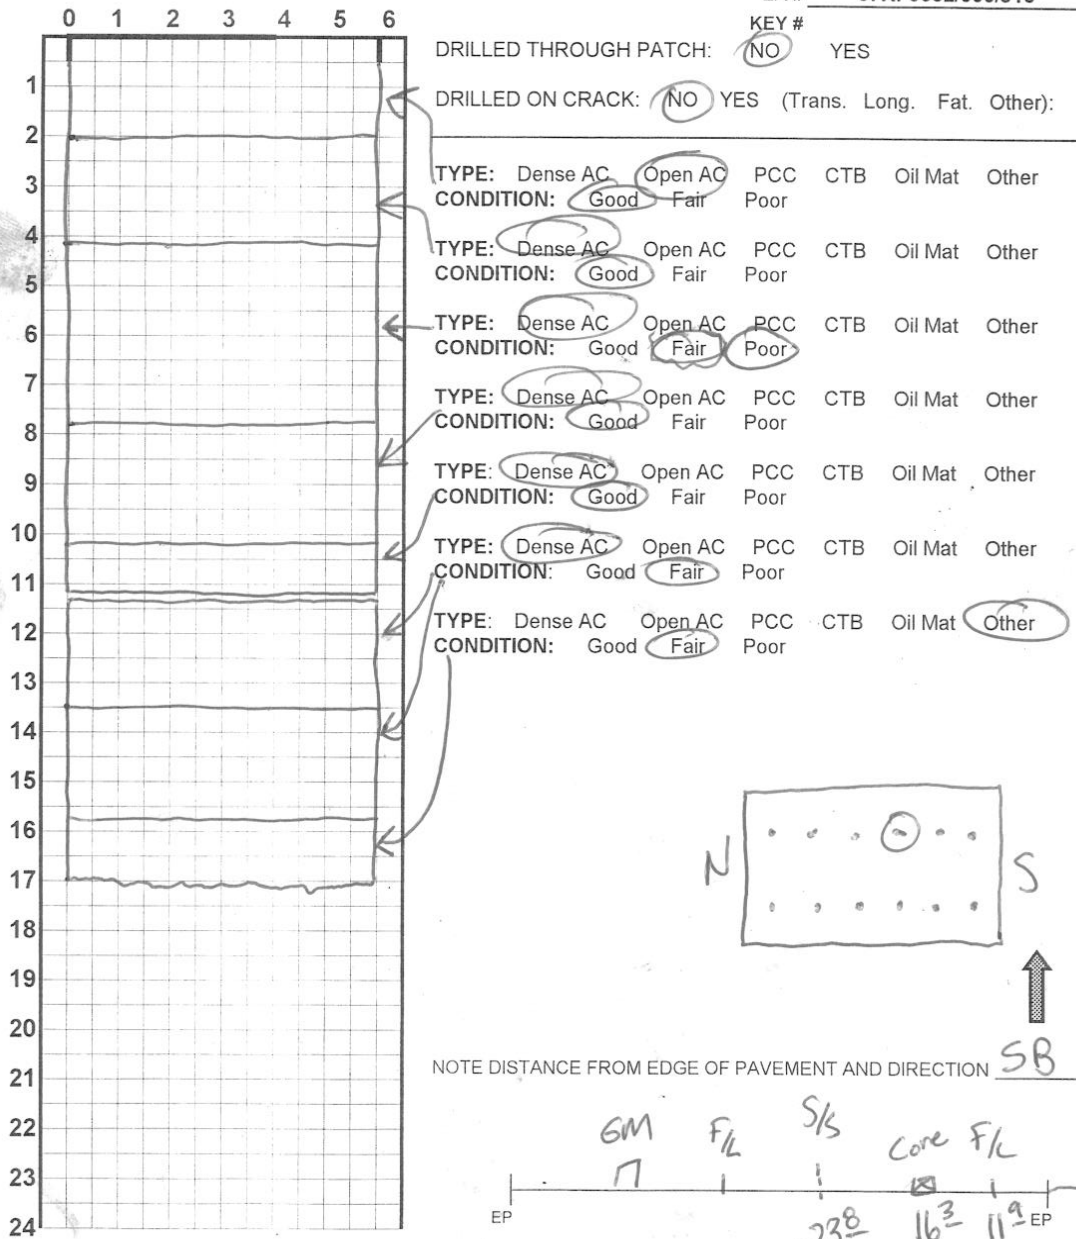 KEY #
0 1 2 3 4 5 6
DRILLED THROUGH PATCH: NO YES
1
DRILLED ON CRACK: NO YES (Trans. Long. Fat. Other):
2
TYPE: Dense AC Open AC PCC CTB Oil Mat Other
3
CONDITION: Good Fair Poor
4
TYPE: Dense AC Open AC PCC CTB Oil Mat Other
CONDITION: Good Fair Poor
5
TYPE: Dense AC Open AC PCC CTB Oil Mat Other
6
CONDITION: Good Fair Poor
7
TYPE: Dense AC Open AC PCC CTB Oil Mat Other
CONDITION: Good Fair Poor
8
TYPE: Dense AC Open AC PCC CTB Oil Mat Other
9
CONDITION: Good Fair Poor
10
TYPE: Dense AC Open AC PCC CTB Oil Mat Other
CONDITION: Good Fair Poor
11
TYPE: Dense AC Open AC PCC CTB Oil Mat Other
12
CONDITION: Good Fair Poor
13
14
15
16
N S
17
18
19
20
NOTE DISTANCE FROM EDGE OF PAVEMENT AND DIRECTION SB
21
22
GM F/L S/S Core F/L
23
EP 23⁸ 16³ 11⁹ EP
24